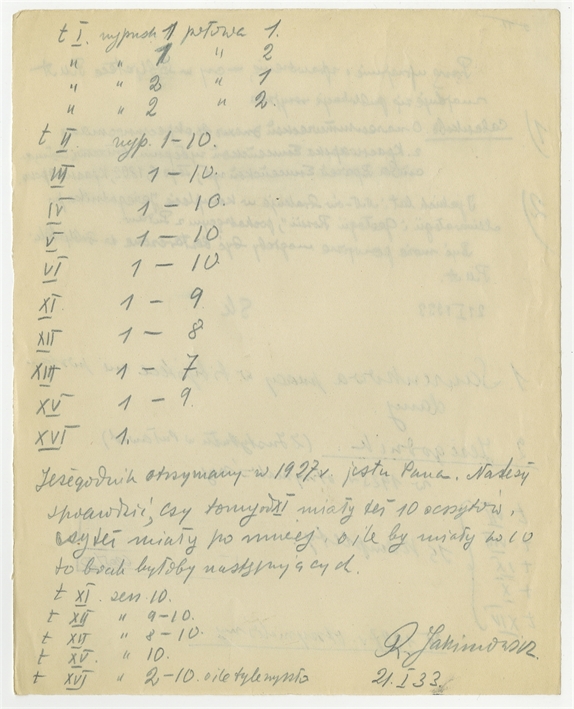 t I. wypusk 1 połowa 1.
" " 1 " 2
" " 2 " 1
" " 2 " 2.
t II wyp. 1–10.
III 1–10.
IV 1–10.
V 1–10.
VI 1–10.
XI 1–9.
XII 1–8
XIII 1–7
XV 1–9.
XVI 1.
Jeżegodnik otrzymany w 1927 r. jest u Pana. Należy
sprawdzić, czy tomy od XI miały też 10 zeszytów,
czy też miały po mniej o ile by miały po 10
to brak byłoby następujących.
t XI. zesz 10.
t XII " 9–10.
t XIII " 8–10.
t XV. " 10.
t XVI " 2–10. o ile tyle wyszło
R. Jakimowicz.
21.I 33.